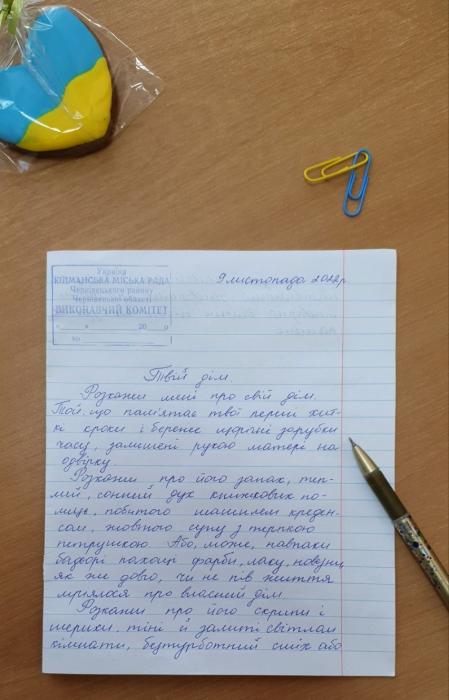 Україна
КІЦМАНСЬКА МІСЬКА РАДА
Чернівецького району
Чернівецької області
ВИКОНАВЧИЙ КОМІТЕТ
« » 20 р
№
9 листопада 2022р
Твій дім.
Розкажи мені про свій дім.
Той, що пам'ятає твої перші хит-
кі кроки і береже щорічні зарубки
часу, залишені рукою матері на
одвірку.
Розкажи про його запах, теп-
лий, сонний дух книжкових по-
лиць, побитого шашилем креден-
сом, жовтого супу з терпкою
петрушкою. Або, може, навпаки
бадьорі пахощі фарби, лаку, новизни,
як же довго, чи не пів життя
мріялося про власний дім.
Розкажи про його скрипи і
шерихи, тіні й залиті світлом
кімнати, безтурботний сміх або